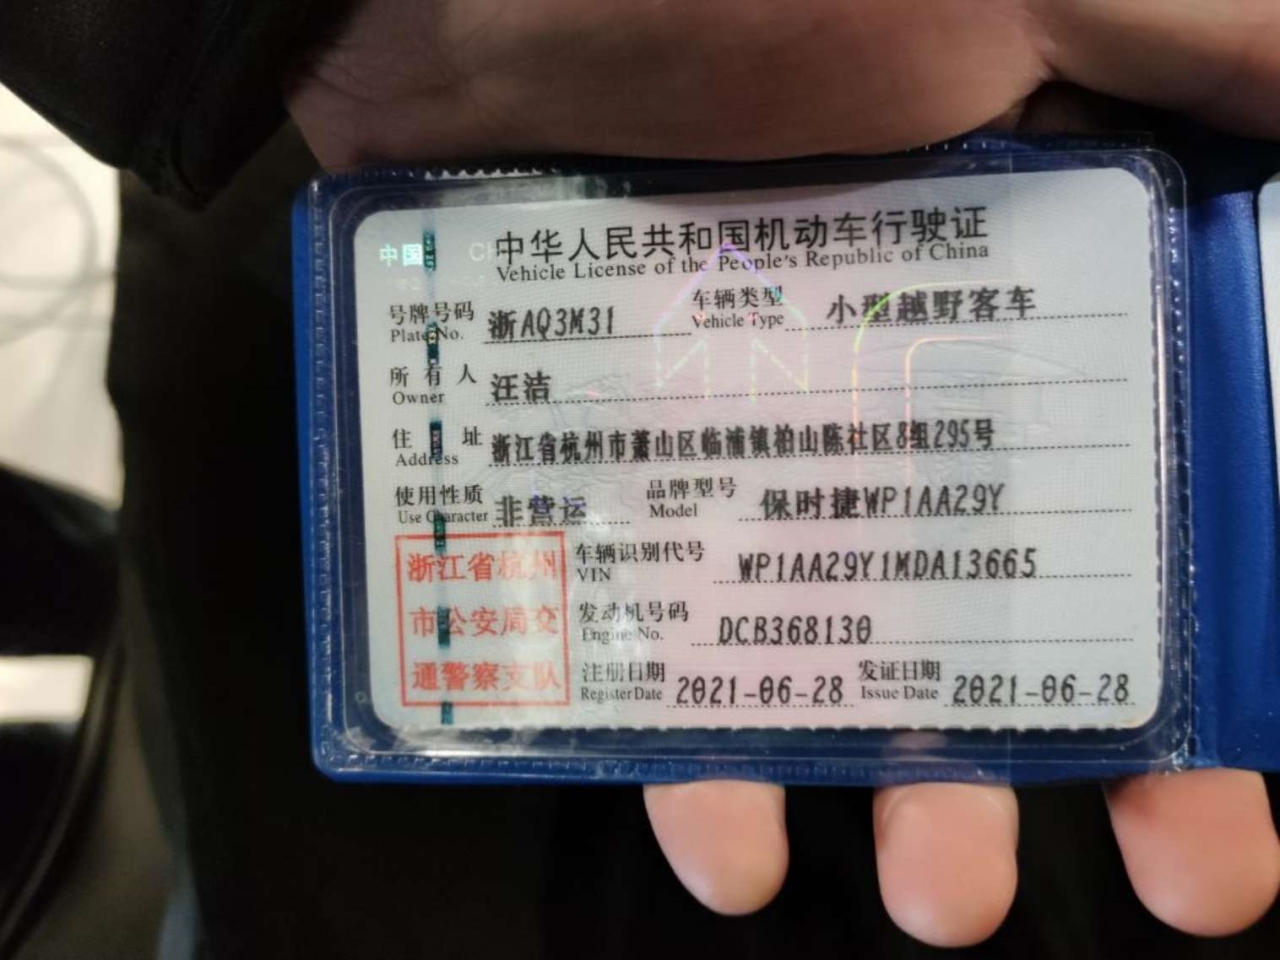 中国 CH
中华人民共和国机动车行驶证
Vehicle License of the People's Republic of China
号牌号码 浙AQ3M31 车辆类型 小型越野客车
Plate No. Vehicle Type
所有人 汪洁
Owner
住址 浙江省杭州市萧山区临浦镇柏山陈社区8组295号
Address
使用性质 非营运 品牌型号 保时捷WP1AA29Y
Use Character Model
车辆识别代号 WP1AA29Y1MDA13665
VIN
发动机号码 DCB368130
Engine No.
注册日期 2021-06-28 发证日期 2021-06-28
Register Date Issue Date
浙江省杭州
市公安局交
通警察支队